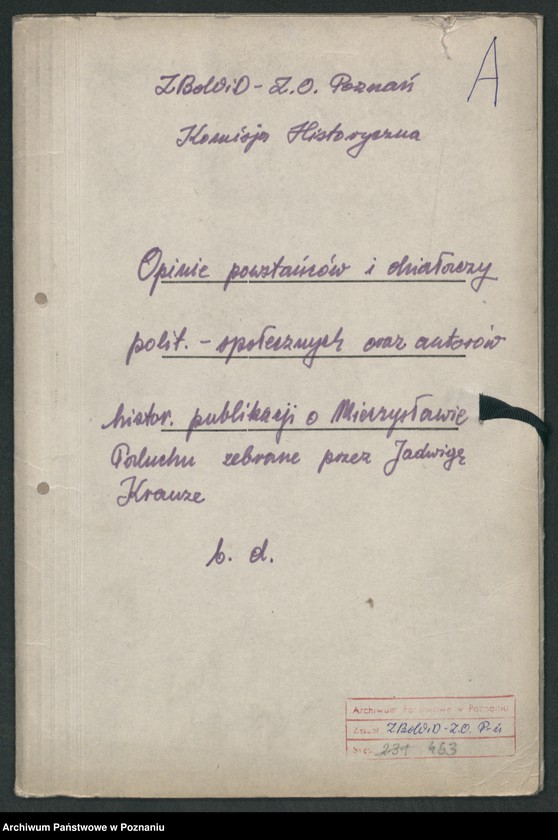 A
ZBoWiD - Z.O. Poznań
Komisja Historyczna
Opinie powstańców i działaczy
polit. - społecznych oraz autorów
histor. publikacji o Mieczysławie
Paluchu zebrane przez Jadwigę
Krauze
b. d.
Archiwum Państwowe w Poznaniu
Zespół ZBoWiD-Z.O. P-ń
Sygn. 231 463
Archiwum Państwowe w Poznaniu